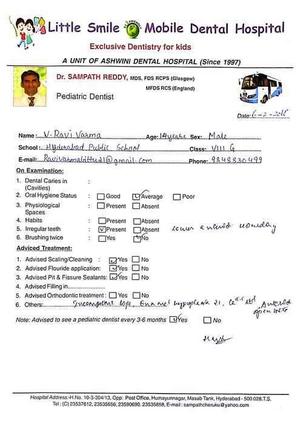 Little Smile Mobile Dental Hospital
Exclusive Dentistry for kids
A UNIT OF ASHWINI DENTAL HOSPITAL (Since 1997)
Dr. SAMPATH REDDY, MDS, FDS RCPS (Glasgow)
MFDS RCS (England)
Pediatric Dentist
Date:
Name: V. Ravi Varma Age: 14 years Sex: Male
School: Hyderabad Public School Class: VIII G
E-mail: Phone: 9848830499
On Examination:
1. Dental Caries in :
(Cavities)
2. Oral Hygiene Status : Good Average Poor
3. Physiological : Present Absent
Spaces
4. Habits : Present Absent
5. Irregular teeth : Present Absent lower anterior
6. Brushing twice : Yes No
Adviced Treatment:
1. Advised Scaling/Cleaning : Yes No
2. Advised Flouride application: Yes No
3. Advised Pit & Fissure Sealants: Yes No
4. Advised Filling in
5. Advised Orthodontic treatment : Yes No
6. Others: Incompetent lip, Enamel hypoplasia 21, Anterior
open bite
Note: Advised to see a pediatric dentist every 3-6 months Yes No
Hospital Address -H.No. 10-3-304/13, Opp: Post Office, Humayunnagar, Masab Tank, Hyderabad - 500 028.T.S.
Tel: (C) 23537612, 23535656, 23590690, 23535858, E-mail : sampathcheruku@yahoo.com